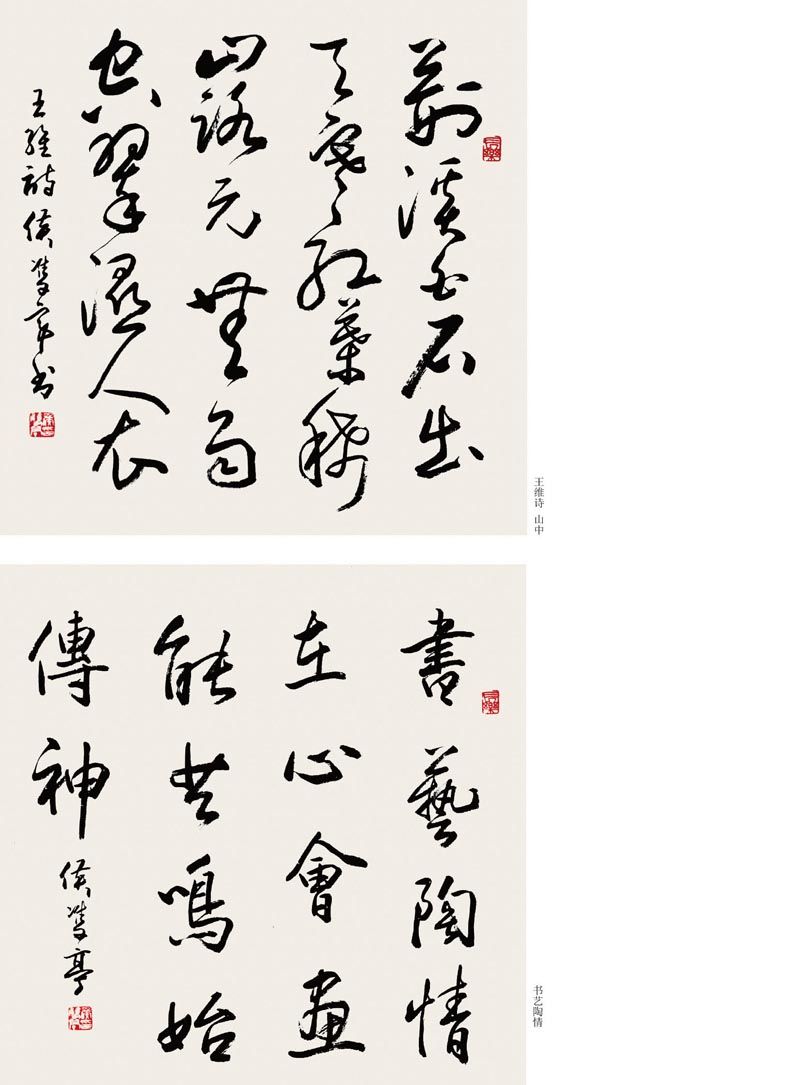 荆溪白石出
天寒紅葉稀
山路元無雨
空翠濕人衣
王維詩侯雙亭书
王维诗 山中
書藝陶情
在心會畫
能共鳴始
傳神
侯雙亭
书艺陶情